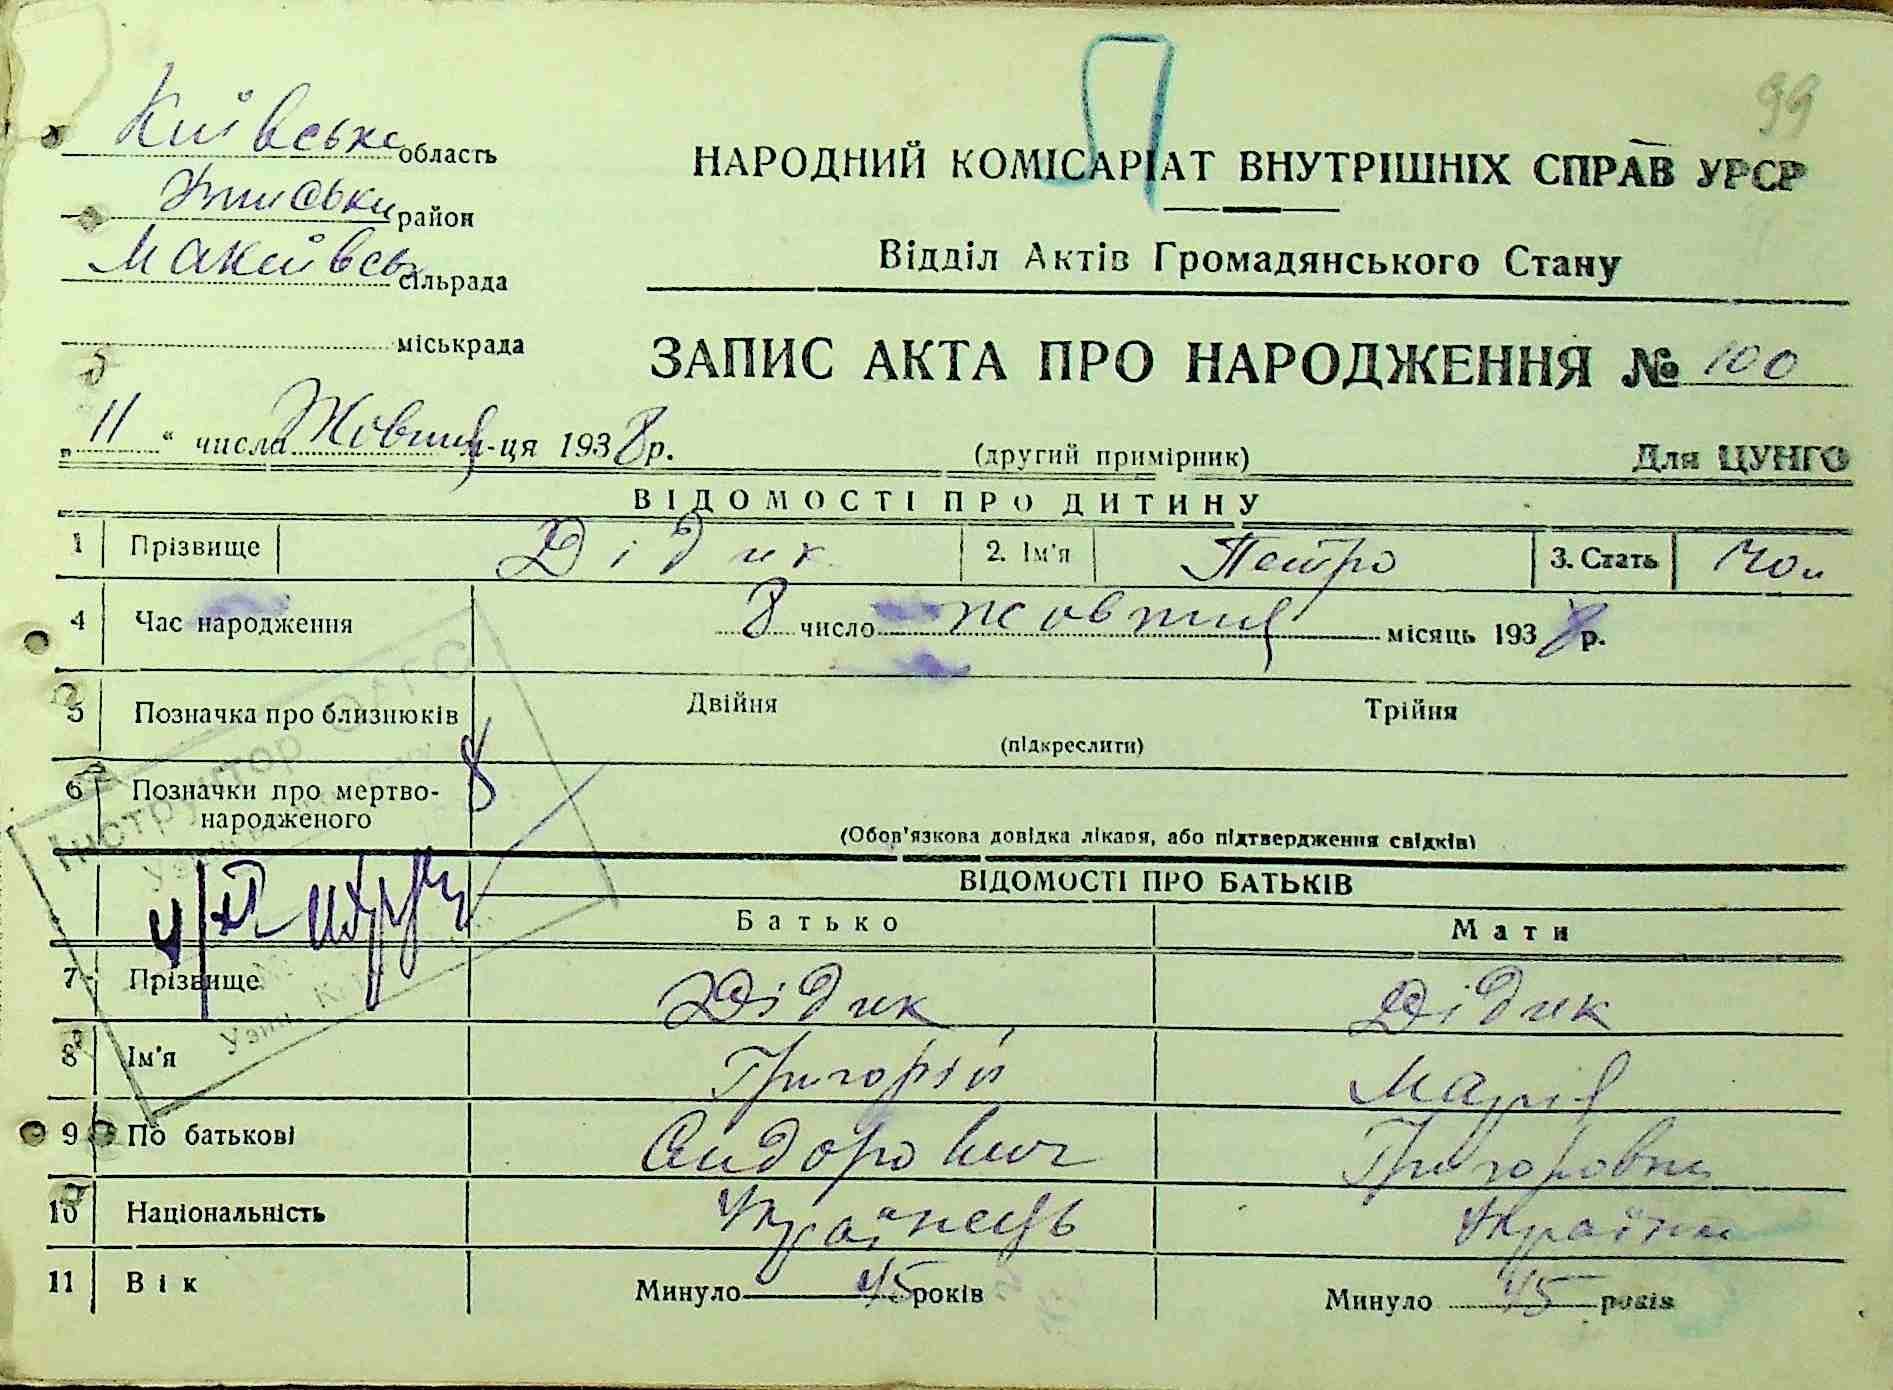 99
Київська область
район
Макіївськ сільрада
міськрада
НАРОДНИЙ КОМІСАРІАТ ВНУТРІШНІХ СПРАВ УРСР
Відділ Актів Громадянського Стану
ЗАПИС АКТА ПРО НАРОДЖЕННЯ № 100
„ 11 “ числа Жовтня м-ця 1938 р. (другий примірник) Для ЦУНГО
ВІДОМОСТІ ПРО ДИТИНУ
1 Прізвище Дідик 2. Ім'я Петро 3. Стать чол
4 Час народження 8 число жовтня місяць 1938 р.
5 Позначка про близнюків Двійня Трійня
(підкреслити)
6 Позначки про мертво-
народженого
(Обов'язкова довідка лікаря, або підтвердження свідків)
Інструктор
ВІДОМОСТІ ПРО БАТЬКІВ
Батько Мати
7 Прізвище Дідик Дідик
8 Ім'я Григорій Марія
9 По батькові Сидорович Григоровна
10 Національність Українець Україн
11 Вік Минуло 45 років Минуло 45 років